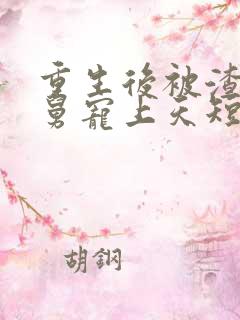 重生後被渣
舅寵上天短
胡鋼